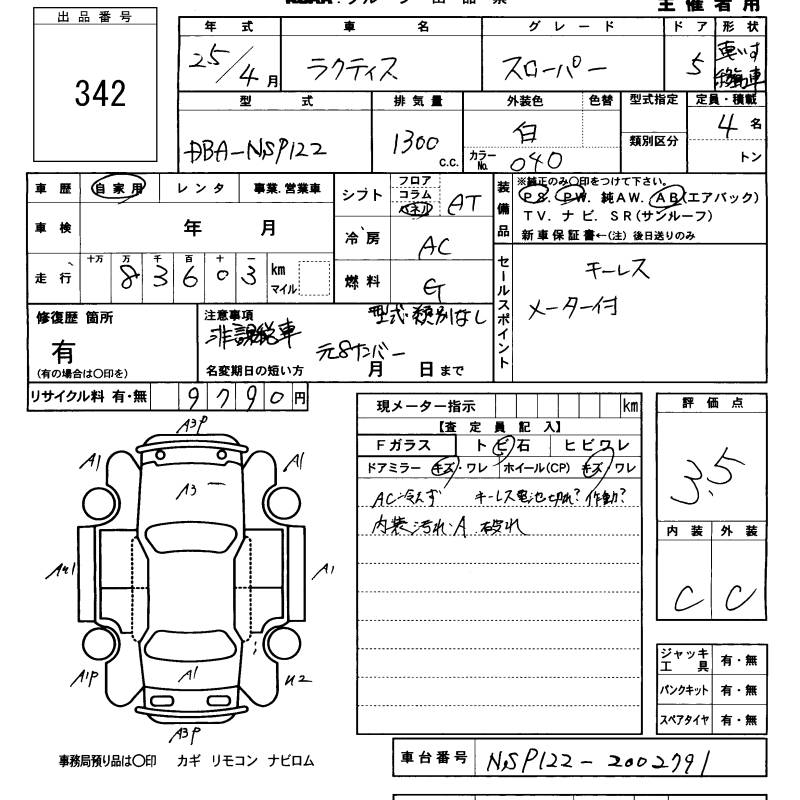 主催者用
出品番号
342
年式 車名 グレード ドア 形状
25/4月 ラクティス スロ－パー 5 車いす移動車
型式 排気量 外装色 色替 型式指定 定員・積載
DBA-NSP122 1300c.c. 白 類別区分 4名
カラーNo. 040 トン
車歴 自家用 レンタ 事業.営業車 シフト フロア コラム パネル AT
装備品 ※純正のみ〇印をつけて下さい。
PS. PW. 純AW. AB(エアバック)
TV. ナビ. SR(サンルーフ)
新車保証書←(注) 後日送りのみ
車検 年 月 冷房 AC
走行 十万 万 千 百 十 一
83603 km マイル 燃料 G
セールスポイント
キーレス
メーター付
修復歴 箇所
有
(有の場合は〇印を)
注意事項 型式・類別なし
非課税車
元8ナンバー
名変期日の短い方 月 日まで
リサイクル料 有・無 9790円
現メーター指示 km
【査定員記入】
Fガラス トビ石 ヒビワレ
ドアミラー キズ・ワレ ホイール(CP) キズ・ワレ
AC冷えず キーレス電池切れ? 作動?
内装汚れ・A 破れ
評価点
3.5
内装 外装
C C
A3P
A1 A1
A3
A1
A1P A1 U2
A3P
ジャッキ工具 有・無
パンクキット 有・無
スペアタイヤ 有・無
事務局預り品は〇印 カギ リモコン ナビロム
車台番号 NSP122-2002791